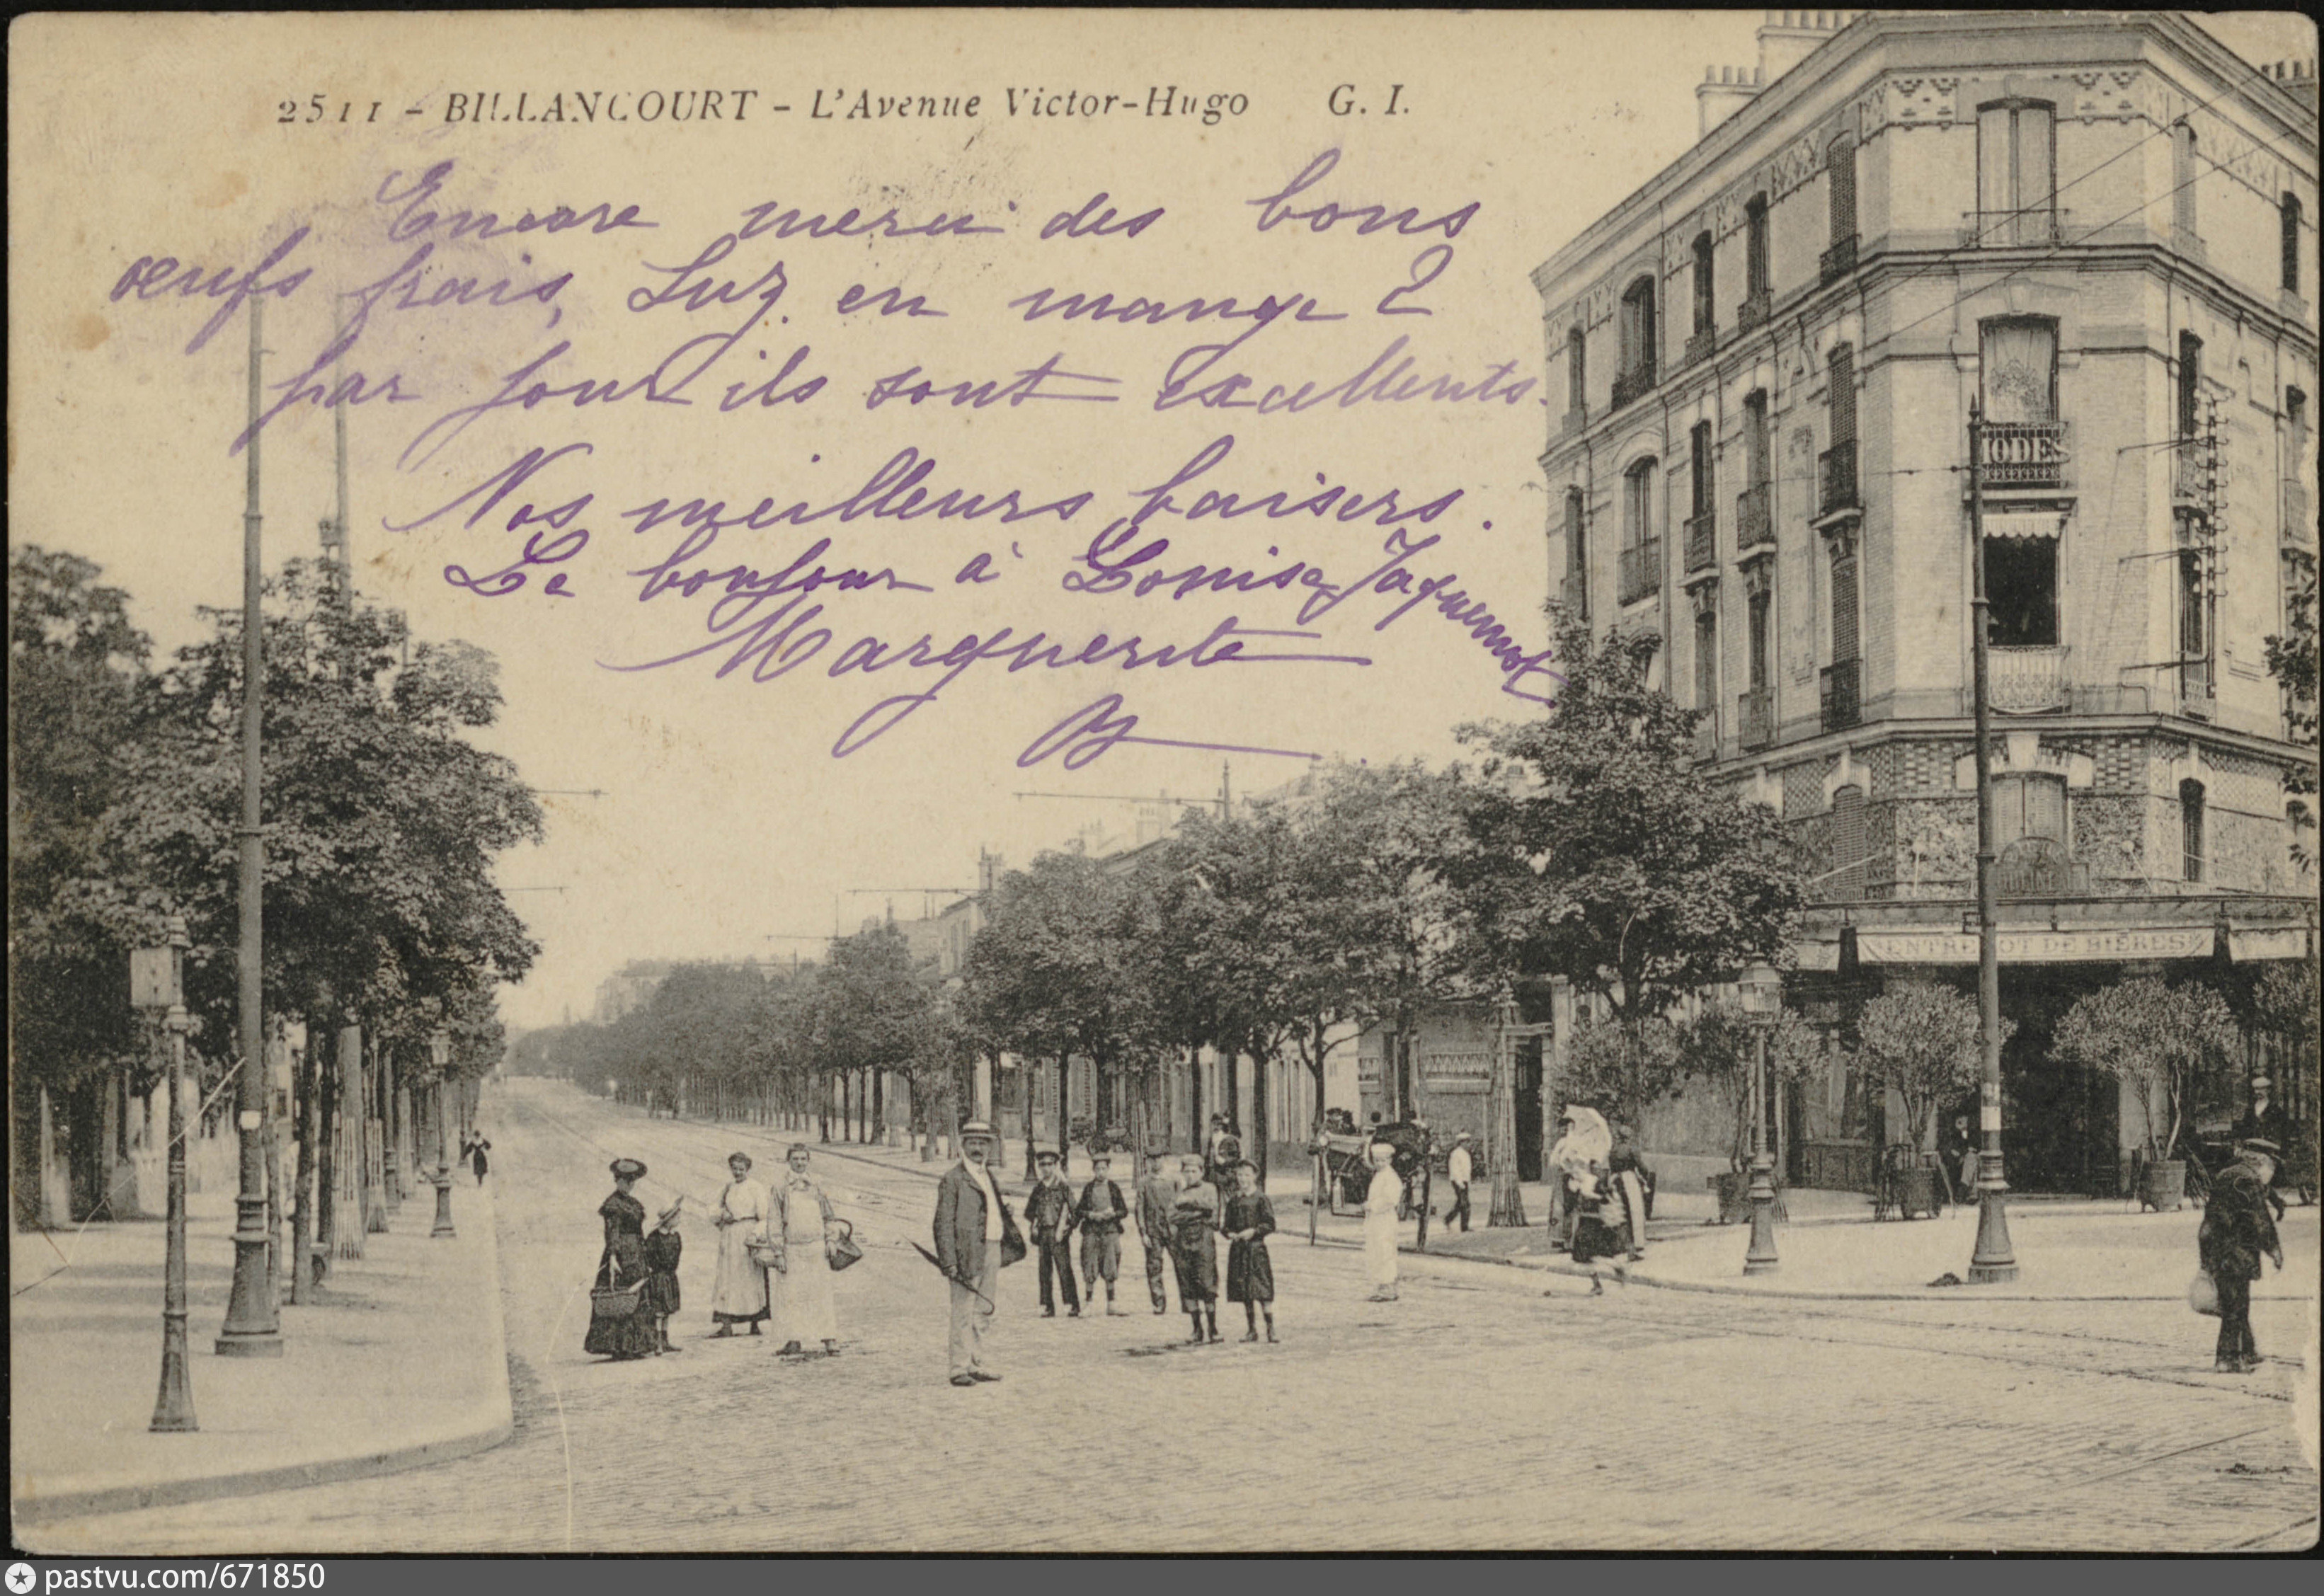 2511 - BILLANCOURT - L'Avenue Victor-Hugo G. I.
Encore merci des bons
œufs frais, Luz. en mange 2
par jour ils sont excellents.
Nos meilleurs baisers.
Le bonjour à Louise Jaquemot
Marguerite
B
MODES
ENTREPOT DE BIERES
pastvu.com/671850